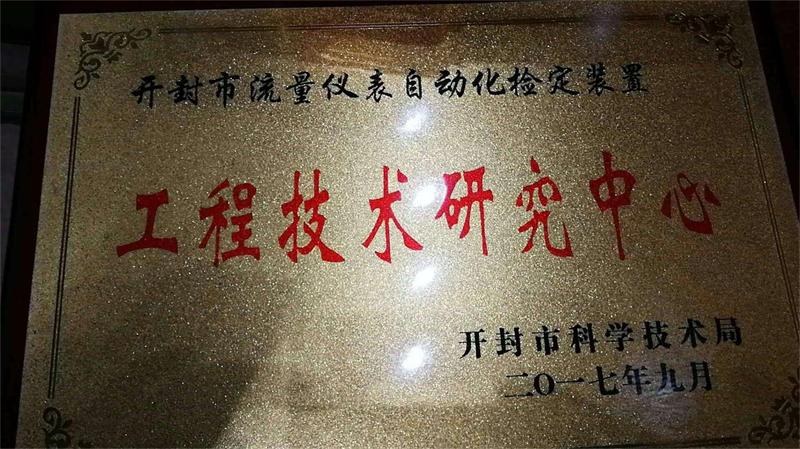 开封市流量仪表自动化检定装置
工程技术研究中心
开封市科学技术局
二〇一七年九月